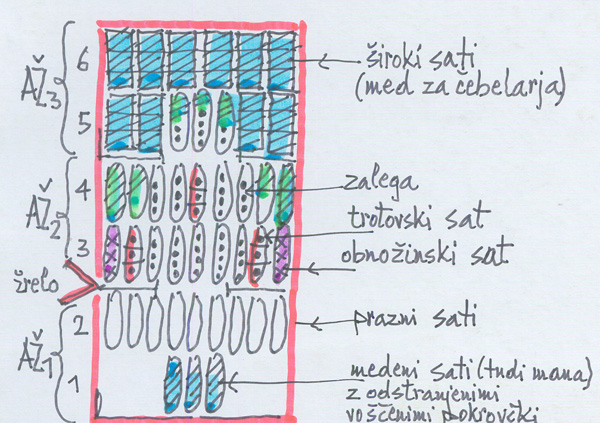 AŽ3
6
5
široki sati
(med za čebelarja)
AŽ2
4
3
zalega
trotovski sat
obnožinski sat
žrelo
AŽ1
2
1
prazni sati
medeni sati (tudi mana)
z odstranjenimi
voščenimi pokrovčki